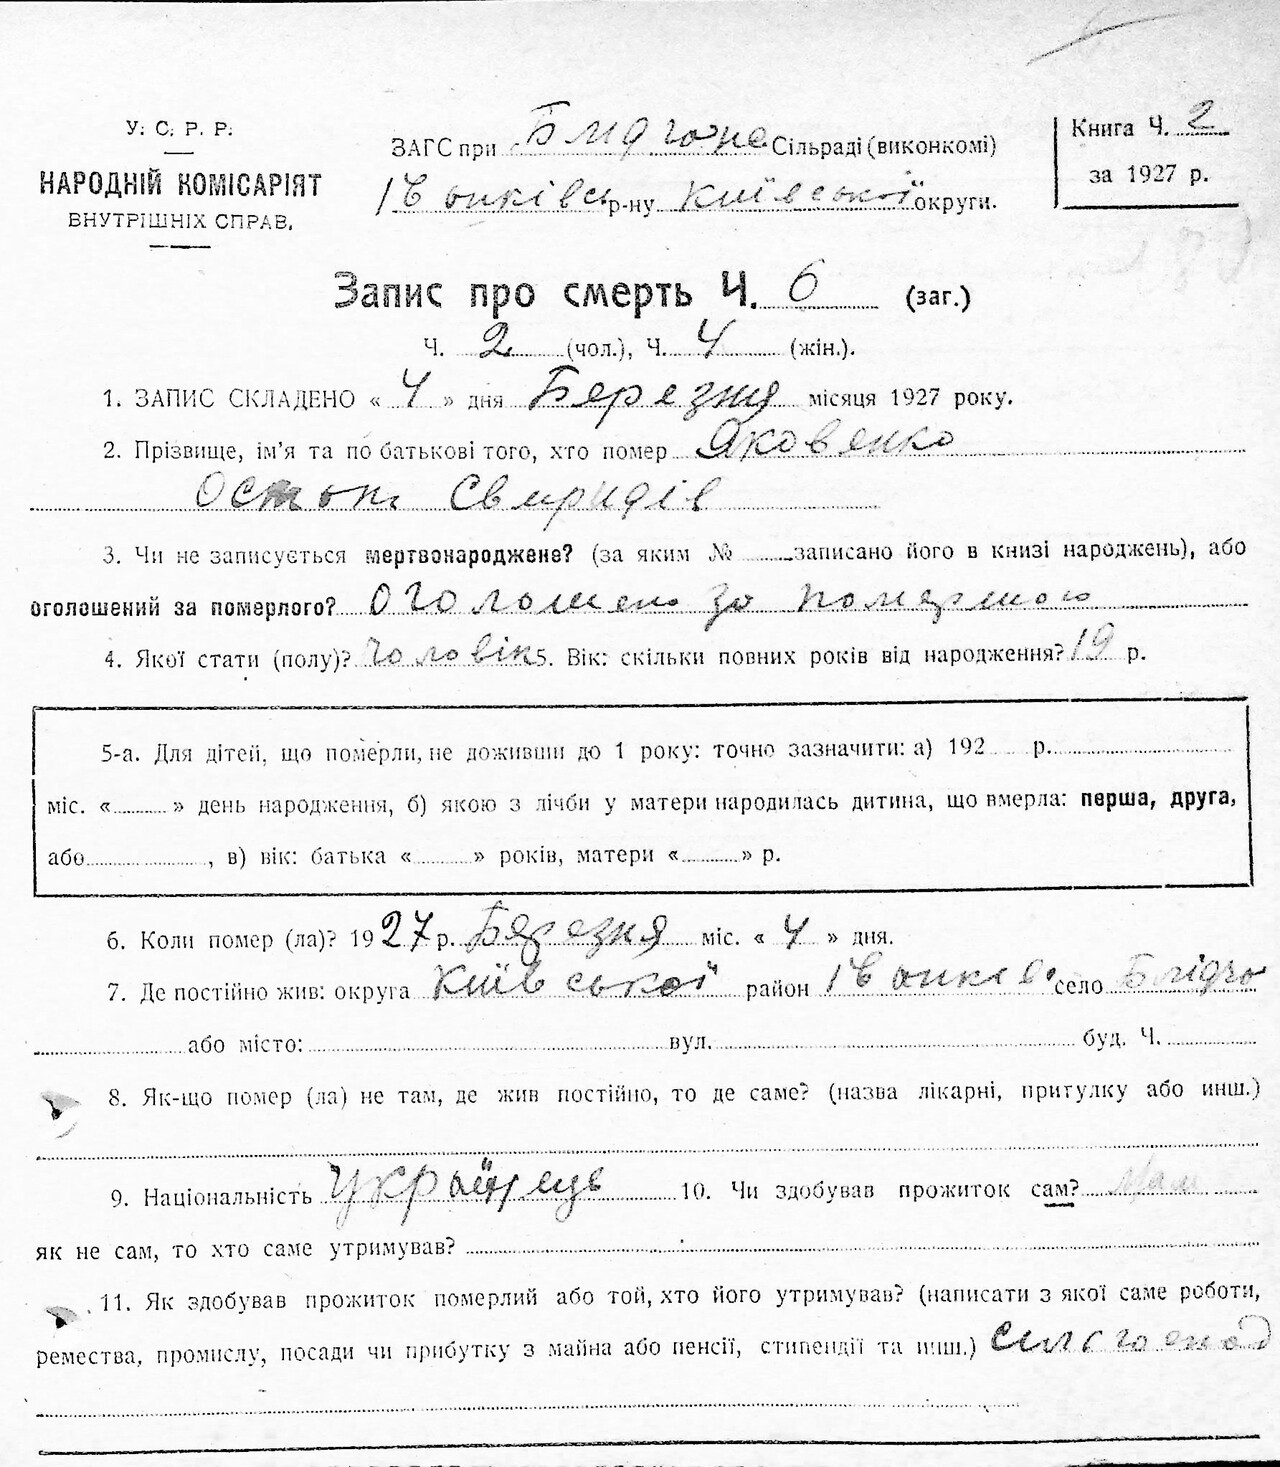 У. С. Р. Р.
НАРОДНІЙ КОМІСАРІЯТ
ВНУТРІШНІХ СПРАВ.
ЗАГС при Блидчоне Сільраді (виконкомі)
Іванківс р-ну Київської округи.
Книга Ч. 2
за 1927 р.
Запис про смерть Ч. 6 (заг.)
Ч. 2 (чол.), Ч. 4 (жін.).
1. ЗАПИС СКЛАДЕНО « 4 » дня Березня місяця 1927 року.
2. Прізвище, ім'я та по батькові того, хто помер Яковенко
Остап Свиридів
3. Чи не записується мертвонароджене? (за яким № записано його в книзі народжень), або
оголошений за померлого? оголошено за померлого
4. Якої стати (полу)? Чоловік 5. Вік: скільки повних років від народження? 19 р.
5-а. Для дітей, що померли, не доживши до 1 року: точно зазначити: а) 192 р.
міс. « » день народження, б) якою з лічби у матери народилась дитина, що вмерла: перша, друга,
або , в) вік: батька « » років, матери « » р.
6. Коли помер (ла)? 1927 р. Березня міс. « 4 » дня.
7. Де постійно жив: округа Київської район Іванків село Блідча
або місто: вул. буд. Ч.
8. Як-що помер (ла) не там, де жив постійно, то де саме? (назва лікарні, притулку або инш.)
9. Національність Українець 10. Чи здобував прожиток сам?
як не сам, то хто саме утримував?
11. Як здобував прожиток померлий або той, хто його утримував? (написати з якої саме роботи,
ремества, промислу, посади чи прибутку з майна або пенсії, стипендії та инш.)